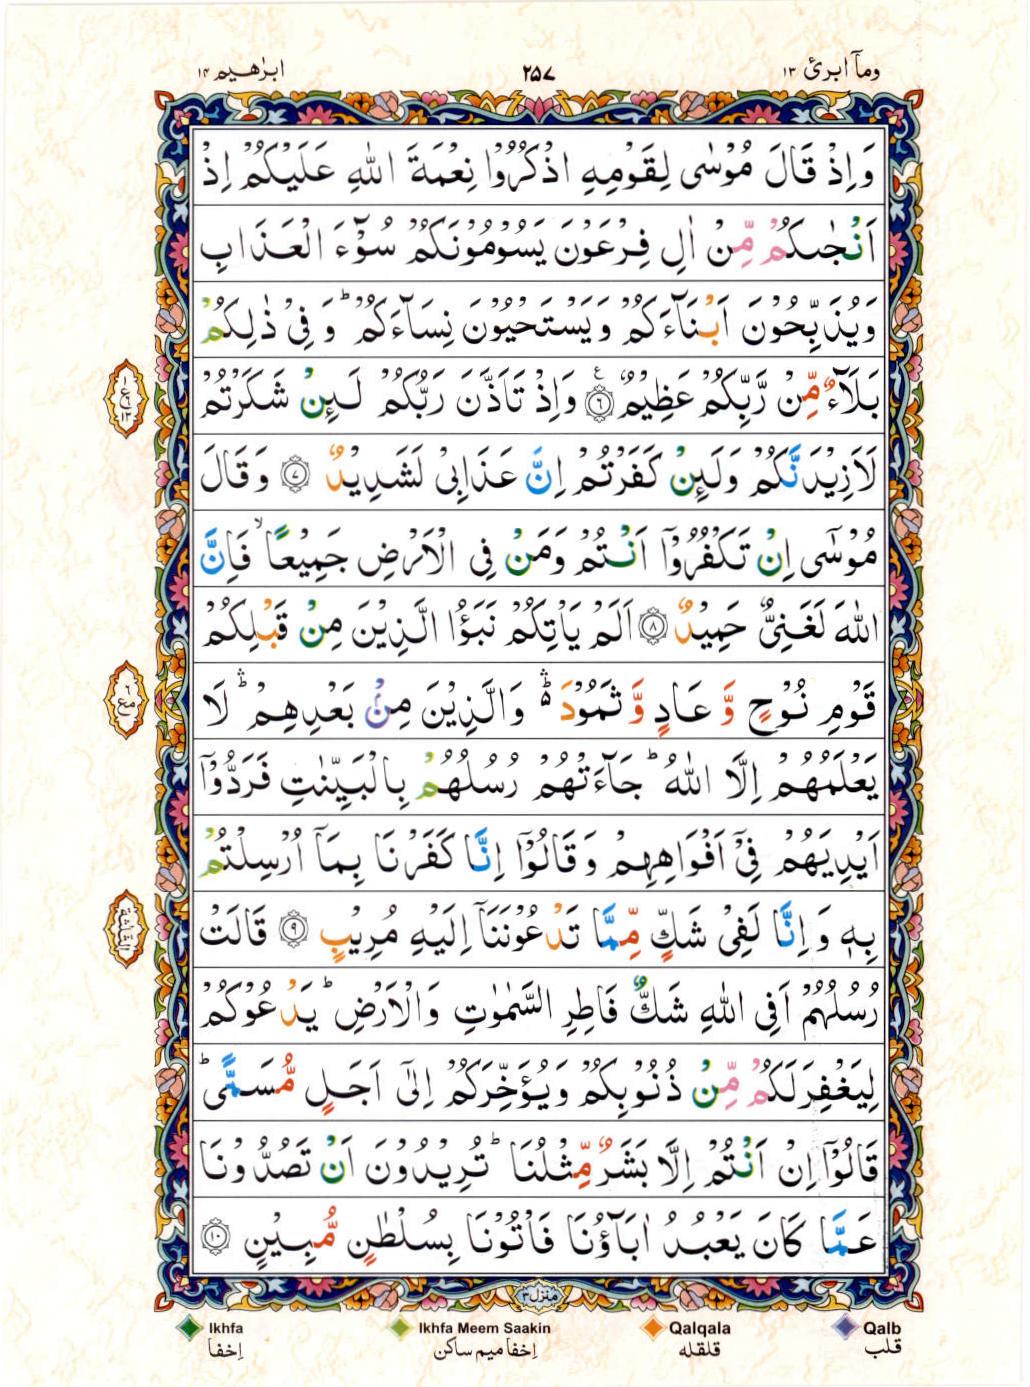 وماۤ ابرئ ١٣
٢٥٧
ابرٰهيم ١٤
وَاِذْ قَالَ مُوْسٰى لِقَوْمِهِ اذْكُرُوْا نِعْمَةَ اللّٰهِ عَلَيْكُمْ اِذْ
اَنْجٰىكُمْ مِّنْ اٰلِ فِرْعَوْنَ يَسُوْمُوْنَكُمْ سُوْٓءَ الْعَذَابِ
وَيُذَبِّحُوْنَ اَبْنَآءَكُمْ وَيَسْتَحْيُوْنَ نِسَآءَكُمْ ؕ وَفِيْ ذٰلِكُمْ
بَلَآءٌ مِّنْ رَّبِّكُمْ عَظِيْمٌ ۝٦ ع وَاِذْ تَاَذَّنَ رَبُّكُمْ لَئِنْ شَكَرْتُمْ
لَاَزِيْدَنَّكُمْ وَلَئِنْ كَفَرْتُمْ اِنَّ عَذَابِيْ لَشَدِيْدٌ ۝٧ وَقَالَ
مُوْسٰٓى اِنْ تَكْفُرُوْۤا اَنْتُمْ وَمَنْ فِى الْاَرْضِ جَمِيْعًا ۙ فَاِنَّ
اللّٰهَ لَغَنِيٌّ حَمِيْدٌ ۝٨ اَلَمْ يَاْتِكُمْ نَبَؤُا الَّذِيْنَ مِنْ قَبْلِكُمْ
قَوْمِ نُوْحٍ وَّعَادٍ وَّثَمُوْدَ ۛؕ وَالَّذِيْنَ مِنْۢ بَعْدِهِمْ ۛؕ لَا
يَعْلَمُهُمْ اِلَّا اللّٰهُ ؕ جَآءَتْهُمْ رُسُلُهُمْ بِالْبَيِّنٰتِ فَرَدُّوْۤا
اَيْدِيَهُمْ فِيْۤ اَفْوَاهِهِمْ وَقَالُوْۤا اِنَّا كَفَرْنَا بِمَاۤ اُرْسِلْتُمْ
بِهٖ وَاِنَّا لَفِيْ شَكٍّ مِّمَّا تَدْعُوْنَنَاۤ اِلَيْهِ مُرِيْبٍ ۝٩ قَالَتْ
رُسُلُهُمْ اَفِى اللّٰهِ شَكٌّ فَاطِرِ السَّمٰوٰتِ وَالْاَرْضِ ؕ يَدْعُوْكُمْ
لِيَغْفِرَ لَكُمْ مِّنْ ذُنُوْبِكُمْ وَيُؤَخِّرَكُمْ اِلٰٓى اَجَلٍ مُّسَمًّى ؕ
قَالُوْۤا اِنْ اَنْتُمْ اِلَّا بَشَرٌ مِّثْلُنَا ؕ تُرِيْدُوْنَ اَنْ تَصُدُّوْنَا
عَمَّا كَانَ يَعْبُدُ اٰبَآؤُنَا فَاْتُوْنَا بِسُلْطٰنٍ مُّبِيْنٍ ۝١٠
منزل ٣
Ikhfa
Ikhfa Meem Saakin
Qalqala
Qalb
اِخفا
اِخفا ميم ساكن
قلقله
قلب